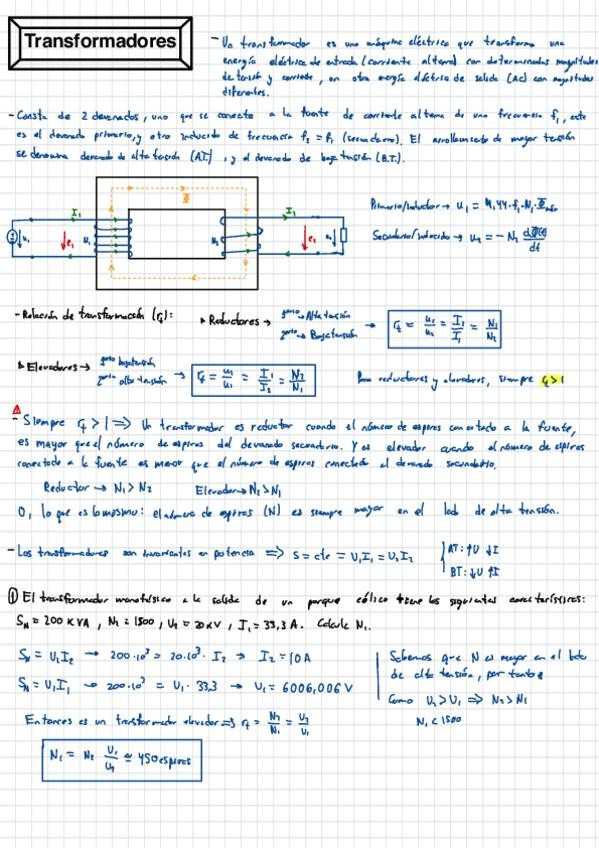 Transformadores
- Un transformador es una máquina eléctrica que transforma una
energía eléctrica de entrada (corriente alterna) con determinadas magnitudes
de tensión y corriente, en otra energía eléctrica de salida (AC) con magnitudes
diferentes.
- Consta de 2 devanados, uno que se conecta a la fuente de corriente alterna de una frecuencia f₁, este
es el devanado primario, y otro inducido de frecuencia f₂ = f₁ (secundario). El arrollamiento de mayor tensión
se denomina devanado de alta tensión (A.T.), y el devanado de baja tensión (B.T.).
I₁ Φ I₁
u₁ e₁ N₁ N₂ e₁
Primario/inductor → u₁ = 4,44·f₁·N₁·Φ
Secundario/inducido → u₂ = - N₂ dΦ(t)/dt
- Relación de transformación (rₜ): ▸ Reductores → Alta tensión
Baja tensión → rₜ = u₁/u₂ = I₂/I₁ = N₁/N₂
▸ Elevadores → baja tensión
alta tensión → rₜ = u₂/u₁ = I₁/I₂ = N₂/N₁
Para reductores y elevadores, siempre rₜ > 1
- Siempre rₜ > 1 ⇒ Un transformador es reductor cuando el número de espiras conectado a la fuente,
es mayor que el número de espiras del devanado secundario. Y es elevador cuando el número de espiras
conectado a la fuente es menor que el número de espiras conectado al devanado secundario.
Reductor → N₁ > N₂ Elevador → N₂ > N₁
O, lo que es lo mismo: el número de espiras (N) es siempre mayor en el lado de alta tensión.
- Los transformadores son invariantes en potencia ⇒ S = cte = U₁I₁ = U₂I₂
AT: ↑U ↓I
BT: ↓U ↑I
① El transformador monofásico a la salida de un parque eólico tiene las siguientes características:
Sₙ = 200 KVA, N₂ = 1500, U₂ = 20 KV, I₁ = 33,3 A. Calcule N₁.
Sₙ = U₂I₂ → 200·10³ = 20·10³· I₂ → I₂ = 10 A
Sₙ = U₁I₁ → 200·10³ = U₁ · 33,3 → U₁ = 6006,006 V
Entonces es un transformador elevador ⇒ rₜ = N₂/N₁ = U₂/U₁
N₁ = N₂ U₁/U₂ ≃ 450 espiras
Sabemos que N es mayor en el lado
de alta tensión, por tanto:
Como U₂ > U₁ ⇒ N₂ > N₁
N₁ < 1500